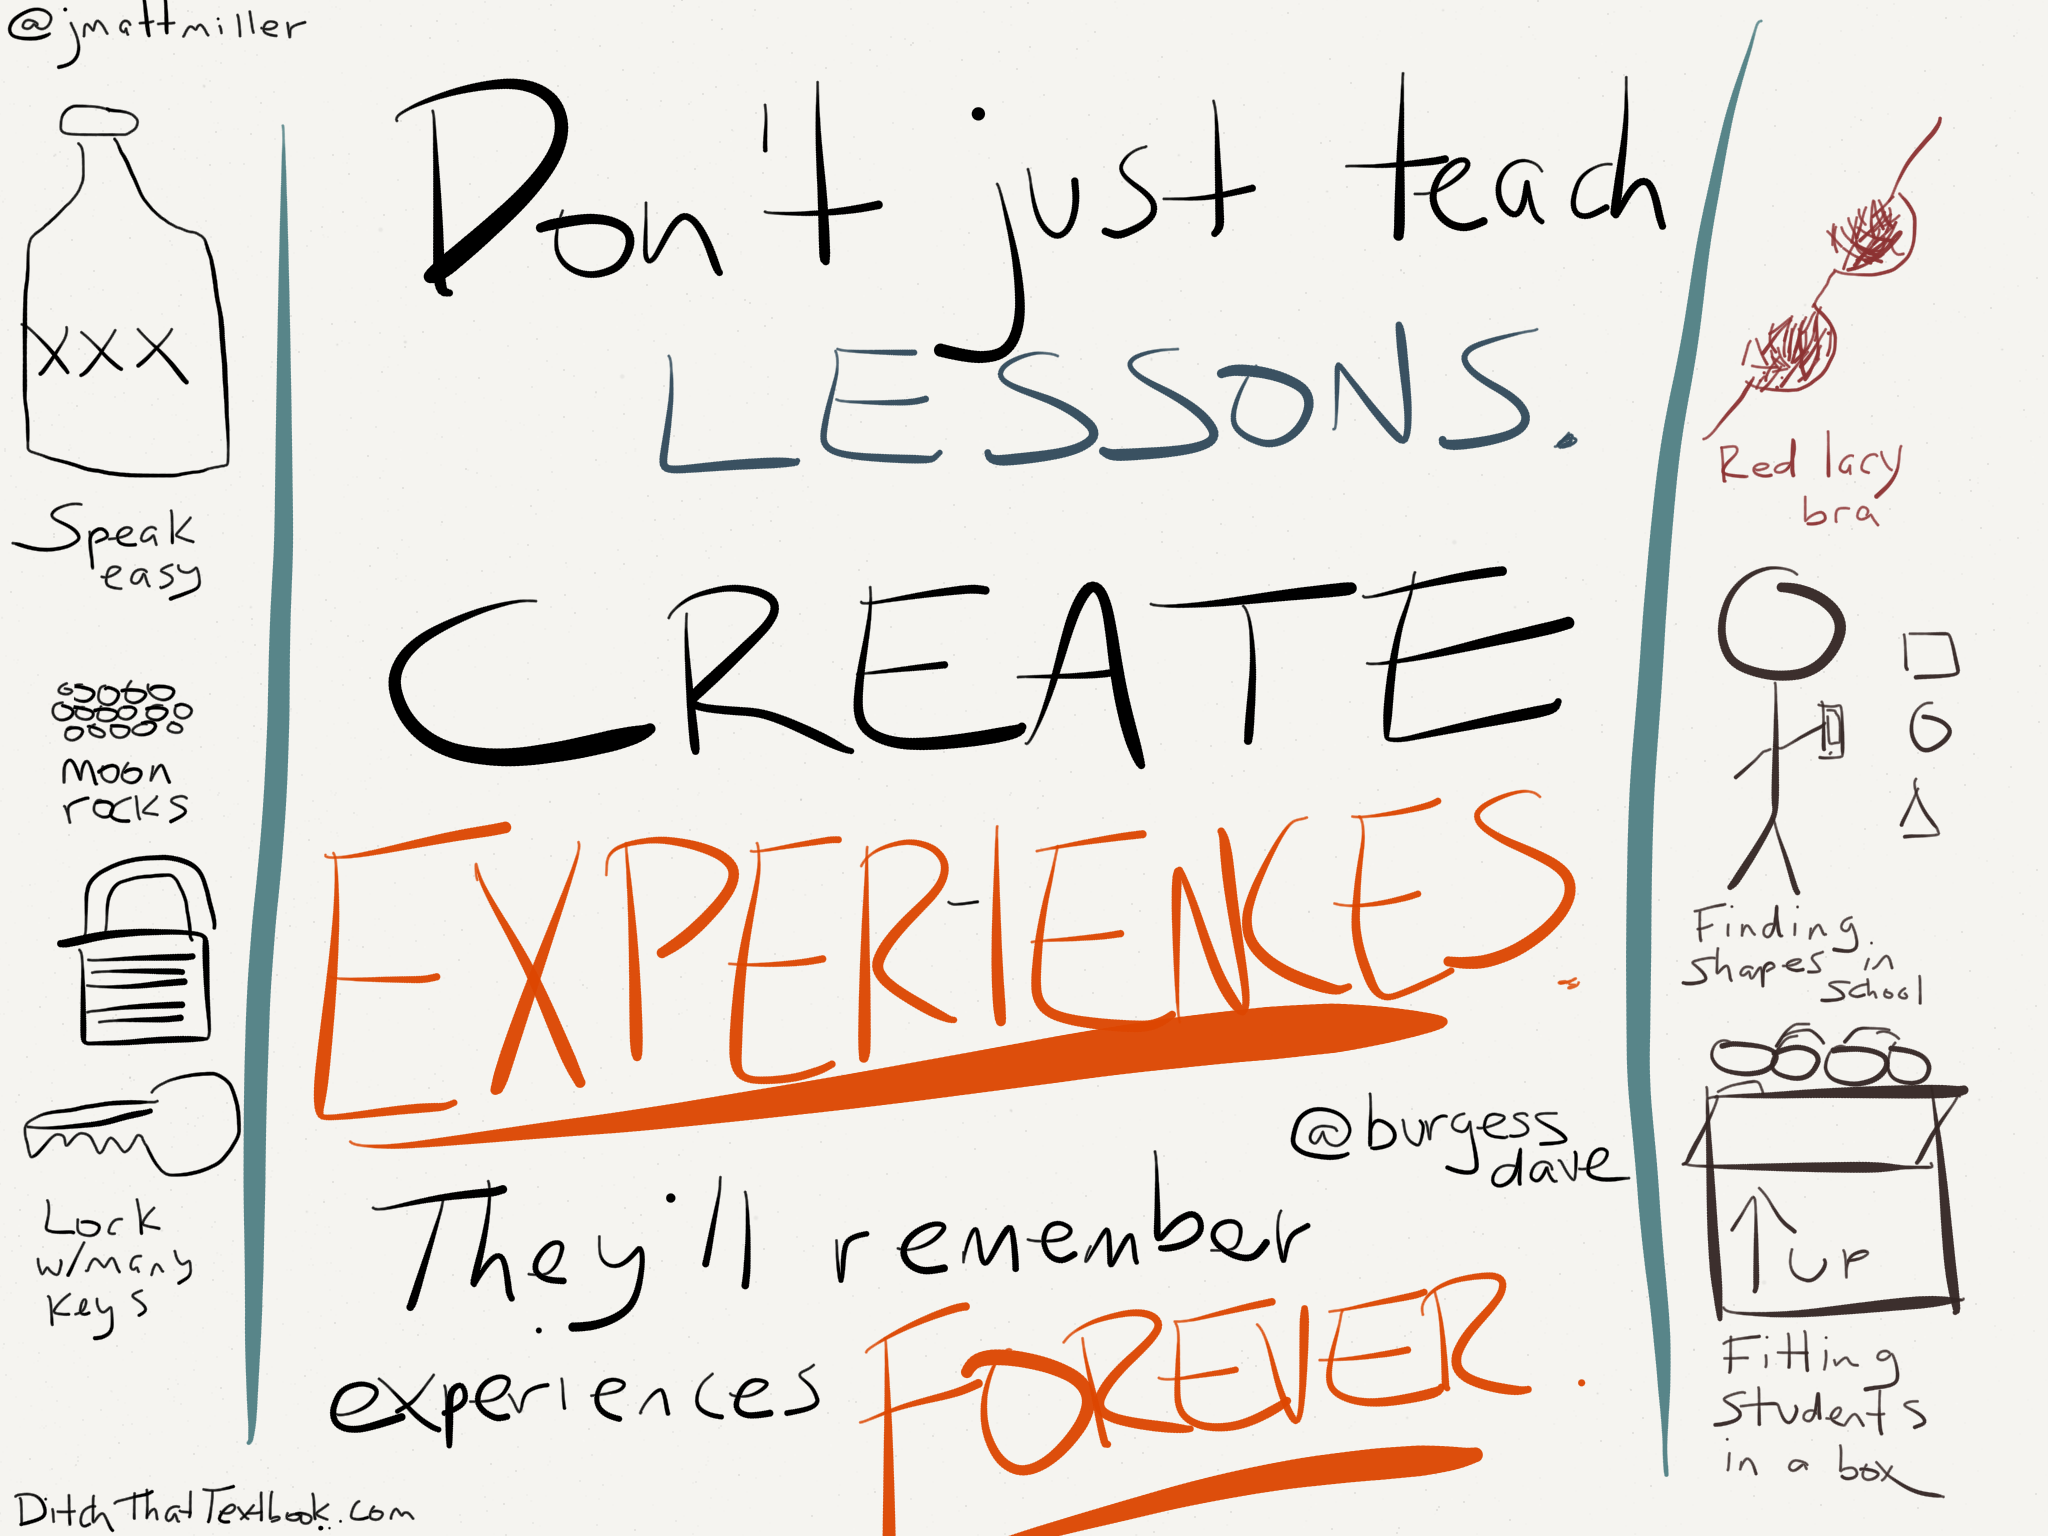 @jmattmiller
Don't just teach
LESSONS.
CREATE
EXPERIENCES.
@burgess
dave
They'll remember
experiences FOREVER.
XXX
Speak
easy
moon
rocks
Lock
w/many
keys
DitchThatTextbook.com
Red lacy
bra
Finding
shapes in
school
UP
Fitting
students
in a box